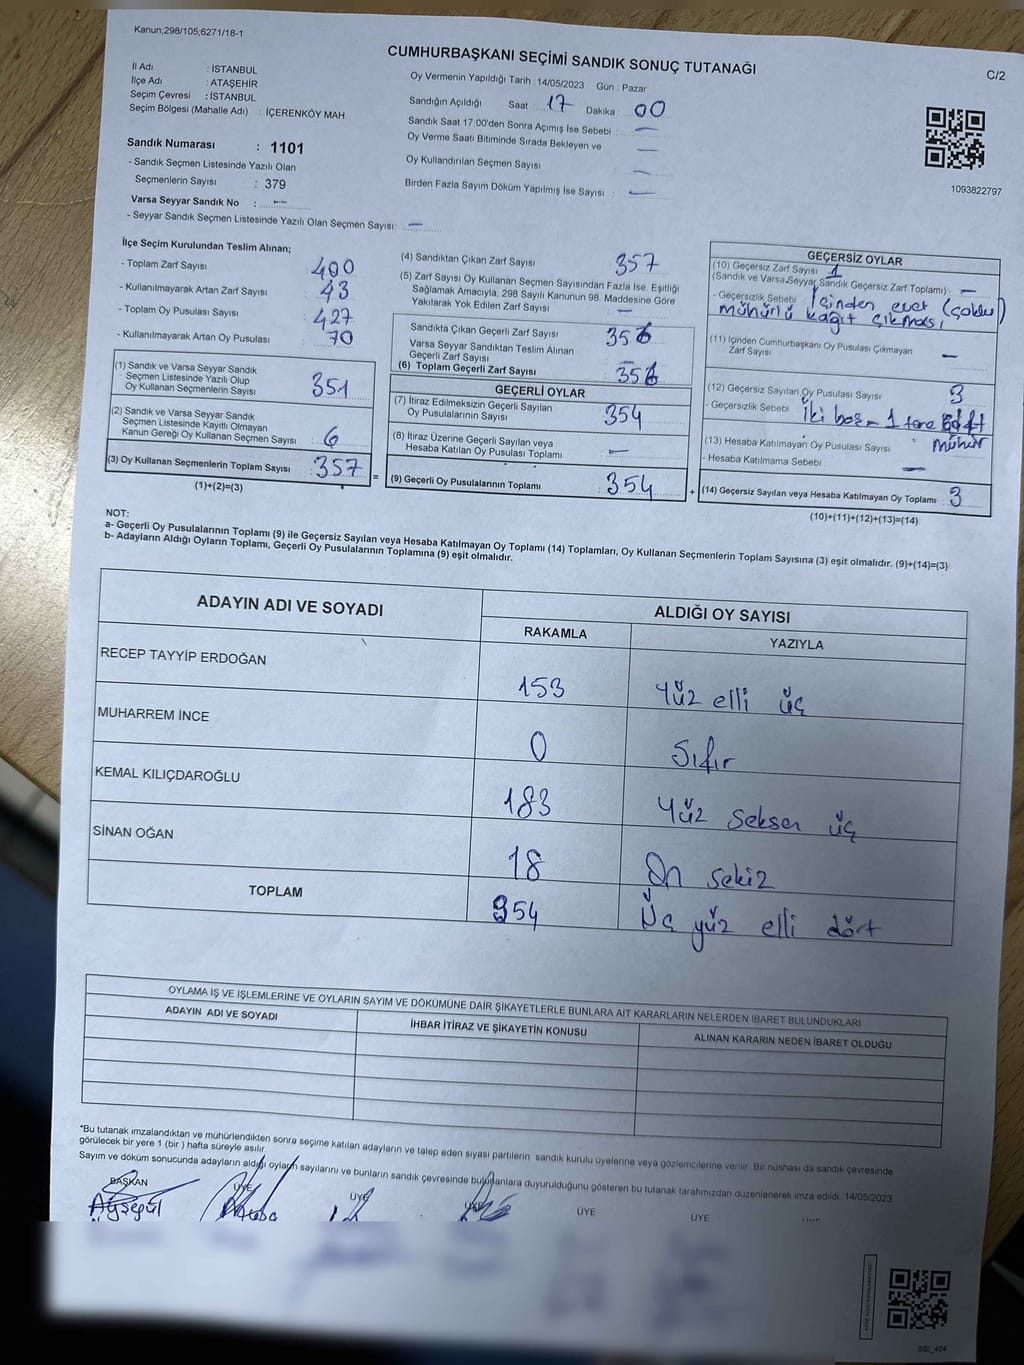 Kanun;298/105,6271/18-1
CUMHURBAŞKANI SEÇİMİ SANDIK SONUÇ TUTANAĞI
C/2
İl Adı : İSTANBUL
İlçe Adı : ATAŞEHİR
Seçim Çevresi : İSTANBUL
Seçim Bölgesi (Mahalle Adı) : İÇERENKÖY MAH
Sandık Numarası : 1101
- Sandık Seçmen Listesinde Yazılı Olan
Seçmenlerin Sayısı : 379
Varsa Seyyar Sandık No : —
- Seyyar Sandık Seçmen Listesinde Yazılı Olan Seçmen Sayısı: —
Oy Vermenin Yapıldığı Tarih : 14/05/2023 Gün : Pazar
Sandığın Açıldığı Saat : 17 Dakika : 00
Sandık Saat 17:00'den Sonra Açımış İse Sebebi : —
Oy Verme Saati Bitiminde Sırada Bekleyen ve —
Oy Kullandırılan Seçmen Sayısı —
Birden Fazla Sayım Döküm Yapılmış İse Sayısı : —
1093822797
İlçe Seçim Kurulundan Teslim Alınan;
- Toplam Zarf Sayısı : 400
- Kullanılmayarak Artan Zarf Sayısı : 43
- Toplam Oy Pusulası Sayısı : 427
- Kullanılmayarak Artan Oy Pusulası : 70
(1) Sandık ve Varsa Seyyar Sandık
Seçmen Listesinde Yazılı Olup
Oy Kullanan Seçmenlerin Sayısı : 351
(2) Sandık ve Varsa Seyyar Sandık
Seçmen Listesinde Kayıtlı Olmayan
Kanun Gereği Oy Kullanan Seçmen Sayısı : 6
(3) Oy Kullanan Seçmenlerin Toplam Sayısı : 357 =
(1)+(2)=(3)
(4) Sandıktan Çıkan Zarf Sayısı : 357
(5) Zarf Sayısı Oy Kullanan Seçmen Sayısından Fazla İse, Eşitliği
Sağlamak Amacıyla, 298 Sayılı Kanunun 98. Maddesine Göre
Yakılarak Yok Edilen Zarf Sayısı : —
Sandıkta Çıkan Geçerli Zarf Sayısı : 356
Varsa Seyyar Sandıktan Teslim Alınan
Geçerli Zarf Sayısı : —
(6) Toplam Geçerli Zarf Sayısı : 356
GEÇERLİ OYLAR
(7) İtiraz Edilmeksizin Geçerli Sayılan
Oy Pusulalarının Sayısı : 354
(8) İtiraz Üzerine Geçerli Sayılan veya
Hesaba Katılan Oy Pusulası Toplamı : —
(9) Geçerli Oy Pusulalarının Toplamı : 354 +
GEÇERSİZ OYLAR
(10) Geçersiz Zarf Sayısı : 1
(Sandık ve Varsa Seyyar Sandık Geçersiz Zarf Toplamı) —
- Geçersizlik Sebebi : İçinden evet (çoklu)
mühürlü kağıt çıkması
(11) İçinden Cumhurbaşkanı Oy Pusulası Çıkmayan
Zarf Sayısı : —
(12) Geçersiz Sayılan Oy Pusulası Sayısı : 3
- Geçersizlik Sebebi : İki boş - 1 tane çift
mühür
(13) Hesaba Katılmayan Oy Pusulası Sayısı : —
- Hesaba Katılmama Sebebi
(14) Geçersiz Sayılan veya Hesaba Katılmayan Oy Toplamı : 3
(10)+(11)+(12)+(13)=(14)
NOT:
a- Geçerli Oy Pusulalarının Toplamı (9) ile Geçersiz Sayılan veya Hesaba Katılmayan Oy Toplamı (14) Toplamları, Oy Kullanan Seçmenlerin Toplam Sayısına (3) eşit olmalıdır. (9)+(14)=(3)
b- Adayların Aldığı Oyların Toplamı, Geçerli Oy Pusulalarının Toplamına (9) eşit olmalıdır.
ADAYIN ADI VE SOYADI
ALDIĞI OY SAYISI
RAKAMLA YAZIYLA
RECEP TAYYİP ERDOĞAN 153 Yüz elli üç
MUHARREM İNCE 0 Sıfır
KEMAL KILIÇDAROĞLU 183 Yüz seksen üç
SİNAN OĞAN 18 On sekiz
TOPLAM 354 Üç yüz elli dört
OYLAMA İŞ VE İŞLEMLERİNE VE OYLARIN SAYIM VE DÖKÜMÜNE DAİR ŞİKAYETLERLE BUNLARA AİT KARARLARIN NELERDEN İBARET BULUNDUKLARI
ADAYIN ADI VE SOYADI İHBAR İTİRAZ VE ŞİKAYETİN KONUSU ALINAN KARARIN NEDEN İBARET OLDUĞU
*Bu tutanak imzalandıktan ve mühürlendikten sonra seçime katılan adayların ve talep eden siyasi partilerin sandık kurulu üyelerine veya gözlemcilerine verilir. Bir nüshası da sandık çevresinde
görülecek bir yere 1 (bir ) hafta süreyle asılır.
Sayım ve döküm sonucunda adayların aldığı oyların sayılarını ve bunların sandık çevresinde bulunanlara duyurulduğunu gösteren bu tutanak tarafımızdan düzenlenerek imza edildi. 14/05/2023
BAŞKAN ÜYE ÜYE ÜYE ÜYE ÜYE
Ayşegül
SSİ_404